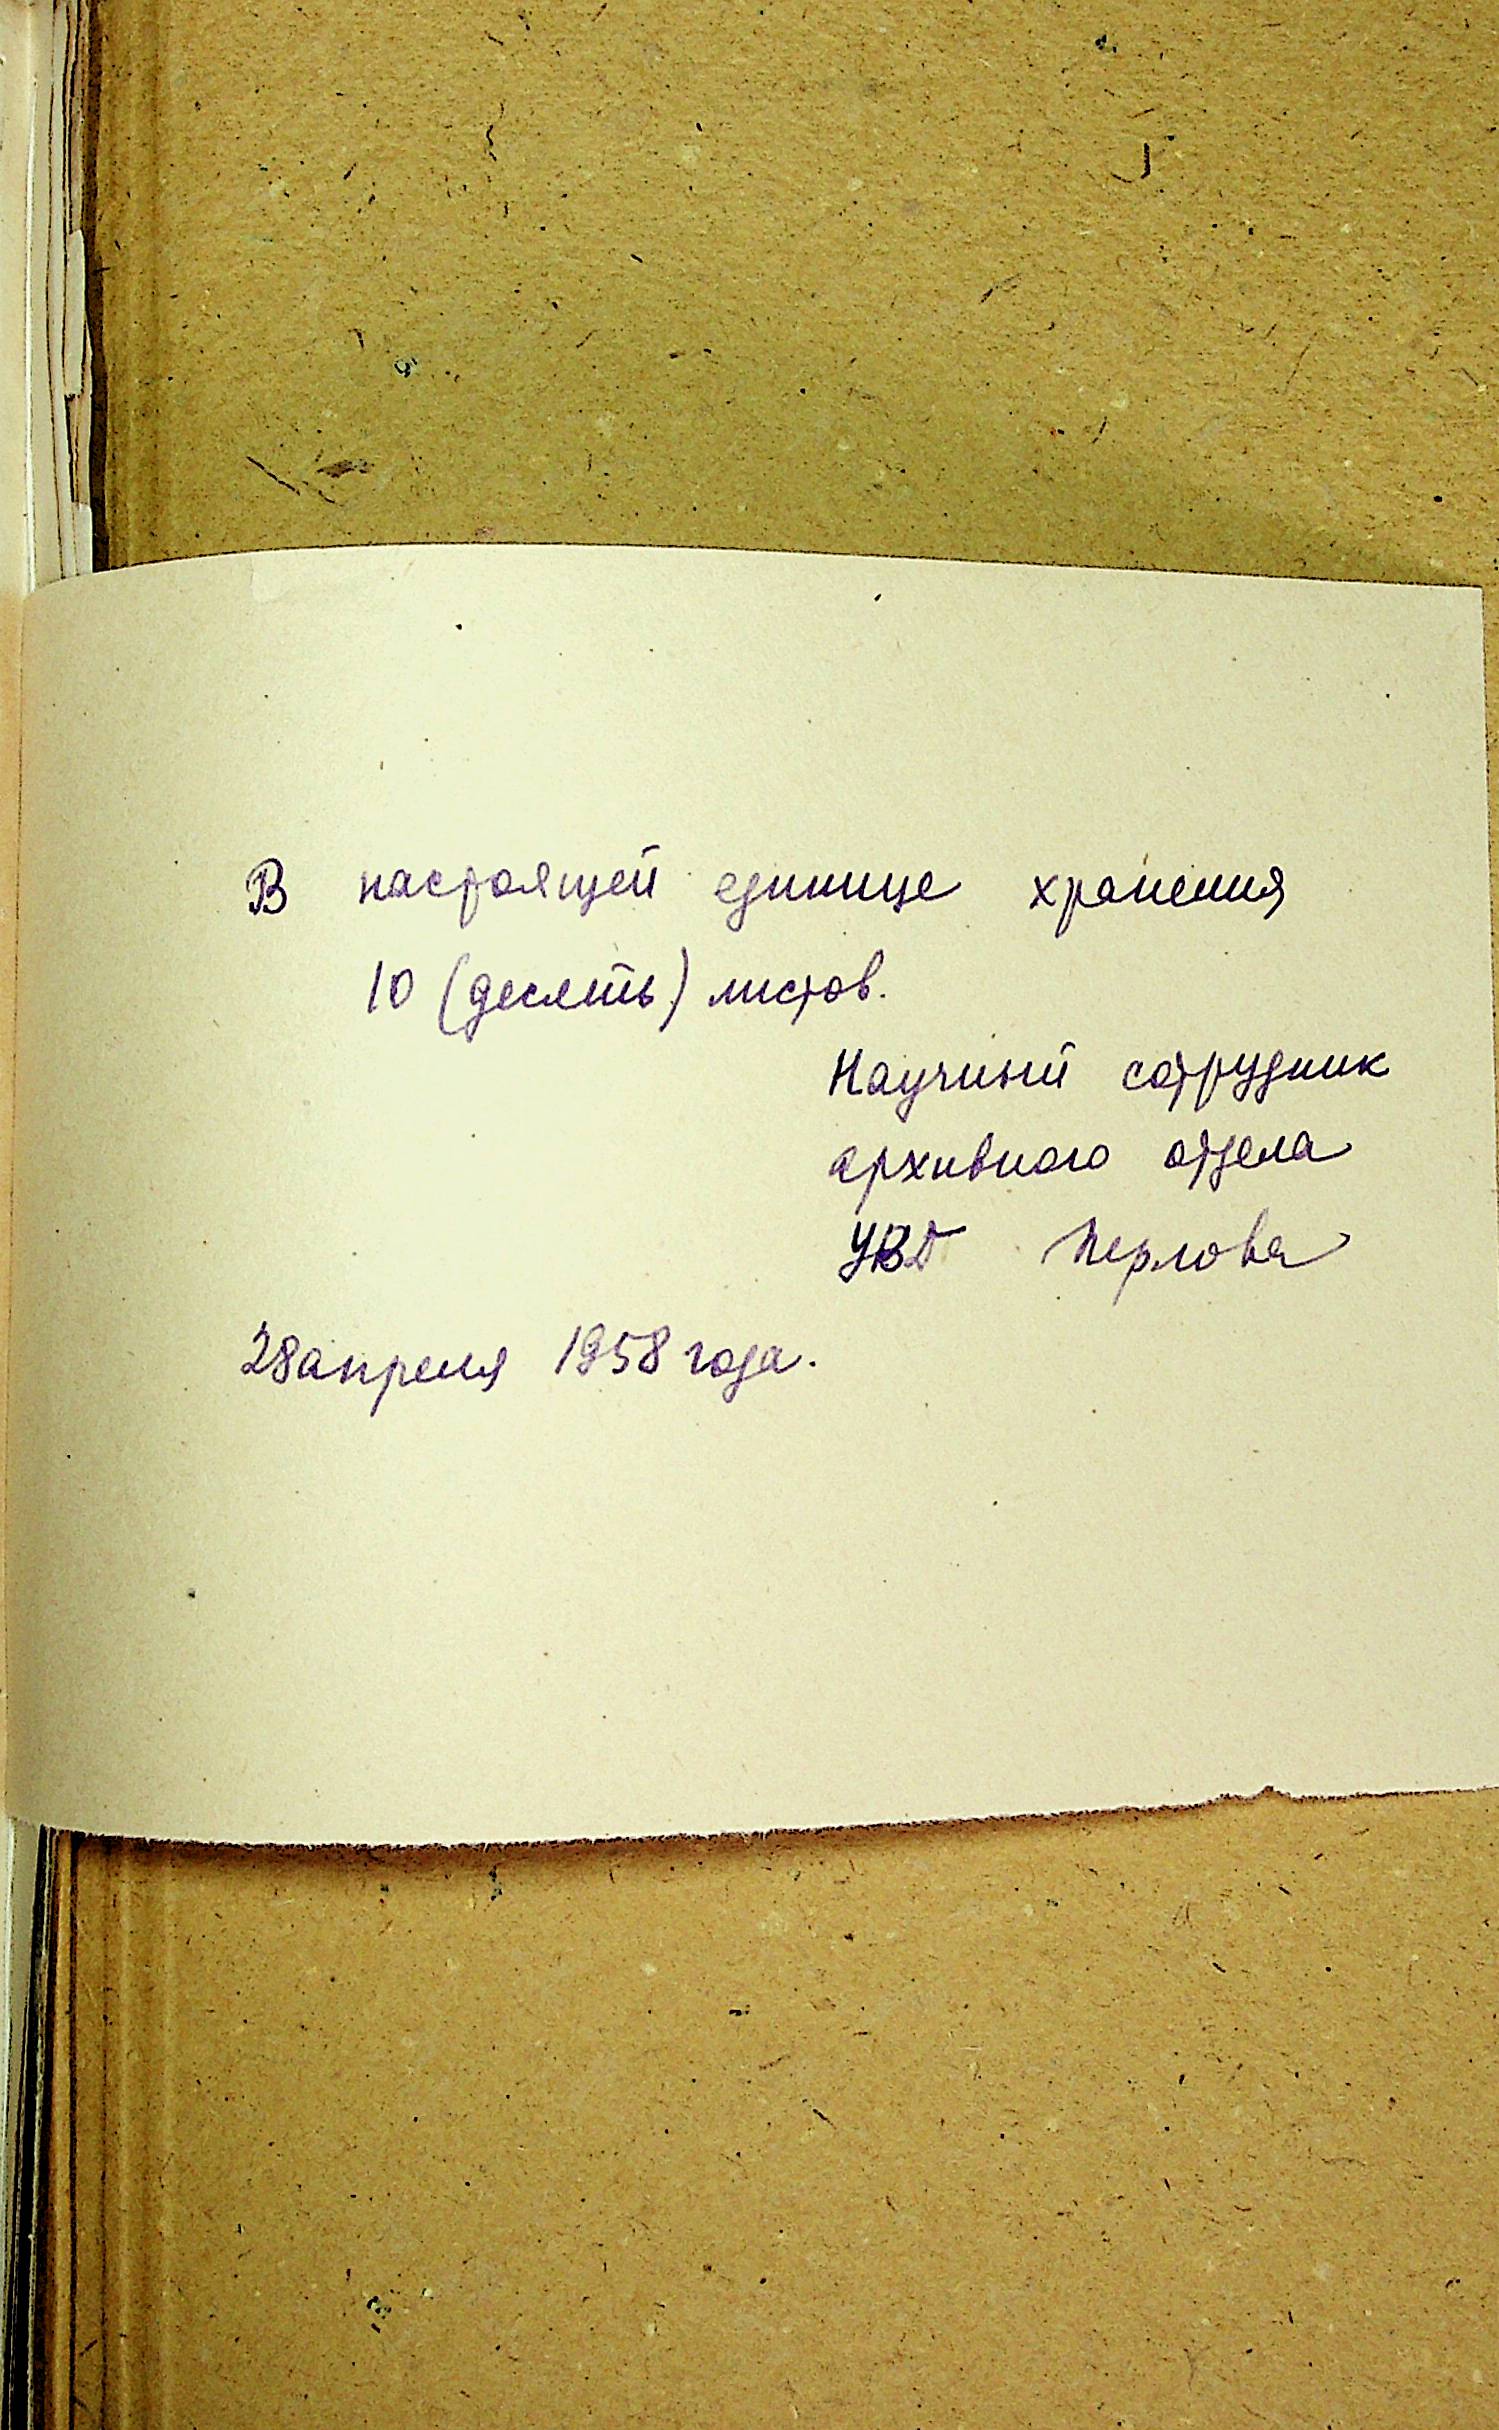 В настоящей единице хранения
10 (десять) листов.
Научный сотрудник
архивного отдела
УВД Перлова
28 апреля 1958 года.